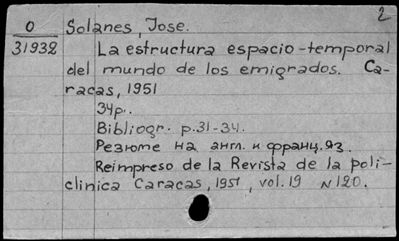 2
O Solanes, Jose.
31932
La estructura espacio-temporal
del mundo de los emigrados. Ca-
racas, 1951
34p.
Bibliogr. p.31-34.
Резюме на англ. и франц. яз.
Reimpreso de la Revista de la poli-
clinica Caracas, 1951, vol. 19 N 120.